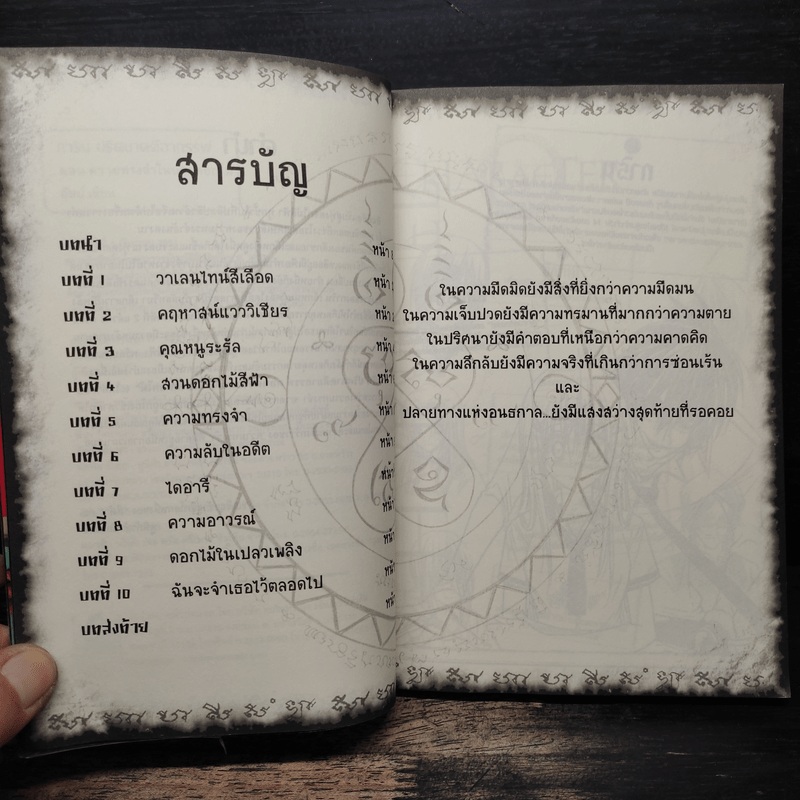 สารบัญ
บทนำ หน้า
บทที่ 1 วาเลนไทน์สีเลือด หน้า
บทที่ 2 คฤหาสน์แวววิเชียร หน้า
บทที่ 3 คุณหนูระรัล หน้า
บทที่ 4 สวนดอกไม้สีฟ้า หน้า
บทที่ 5 ความทรงจำ หน้า
บทที่ 6 ความลับในอดีต หน้า
บทที่ 7 ไดอารี หน้า
บทที่ 8 ความอาวรณ์ หน้า
บทที่ 9 ดอกไม้ในเปลวเพลิง หน้า
บทที่ 10 ฉันจะจำเธอไว้ตลอดไป หน้า
บทส่งท้าย
ในความมืดมิดยังมีสิ่งที่ยิ่งกว่าความมืดมน
ในความเจ็บปวดยังมีความทรมานที่มากกว่าความตาย
ในปริศนายังมีคำตอบที่เหนือกว่าความคาดคิด
ในความลึกลับยังมีความจริงที่เกินกว่าการซ่อนเร้น
และ
ปลายทางแห่งอนธกาล...ยังมีแสงสว่างสุดท้ายที่รอคอย